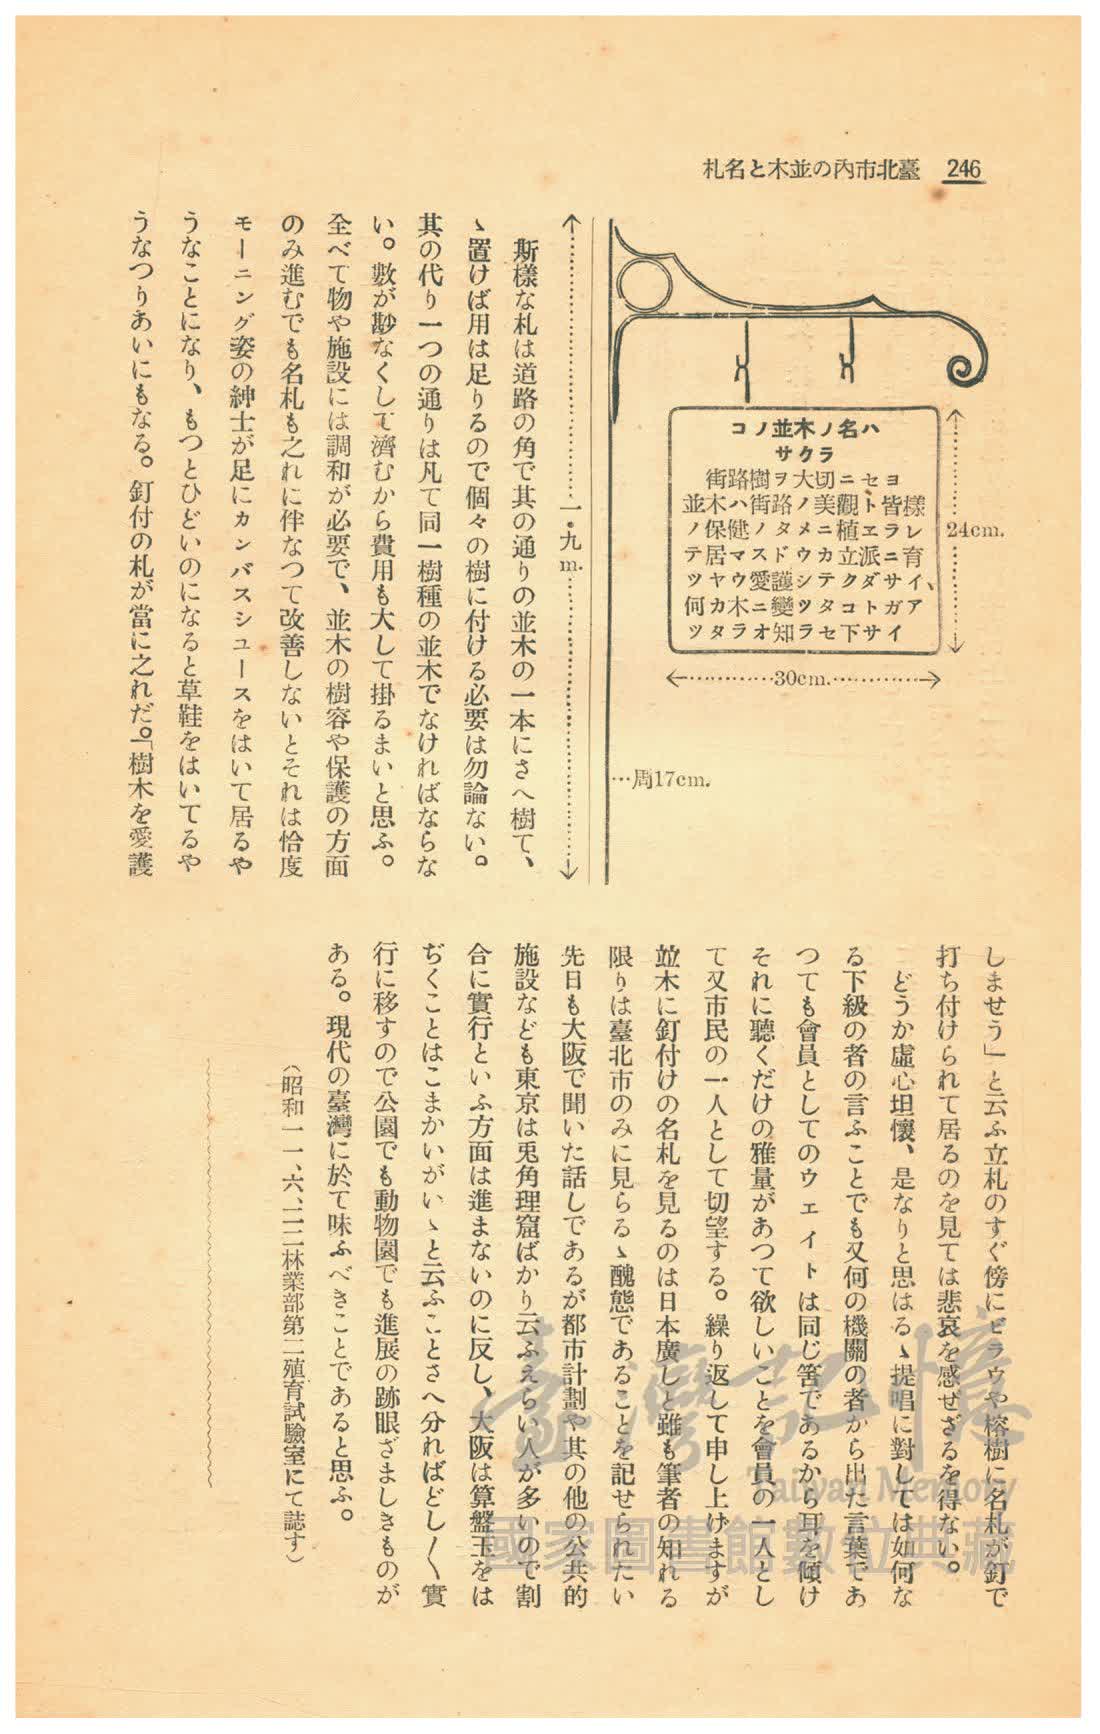 246 臺北市內の並木と名札
コノ並木ノ名ハ
サクラ
街路樹ヲ大切ニセヨ
並木ハ街路ノ美觀ト皆樣
ノ保健ノタメニ植ヱラレ
テ居マスドウカ立派ニ育
ツヤウ愛護シテクダサイ、
何カ木ニ變ツタコトガア
ツタラオ知ラセ下サイ
24cm.
30cm.
…周17cm.
一・九m.
斯樣な札は道路の角で其の通りの並木の一本にさへ樹て、
ゝ置けば用は足りるので個々の樹に付ける必要は勿論ない。
其の代り一つの通りは凡て同一樹種の並木でなければならな
い。數が尠なくして濟むから費用も大して掛るまいと思ふ。
全べて物や施設には調和が必要で、並木の樹容や保護の方面
のみ進むでも名札も之れに伴なつて改善しないとそれは恰度
モーニング姿の紳士が足にカンバスシユースをはいて居るや
うなことになり、もつとひどいのになると草鞋をはいてるや
うなつりあいにもなる。釘付の札が當に之れだ。「樹木を愛護
しませう」と云ふ立札のすぐ傍にビラウや榕樹に名札が釘で
打ち付けられて居るのを見ては悲哀を感ぜざるを得ない。
どうか虛心坦懷、是なりと思はるゝ提唱に對しては如何な
る下級の者の言ふことでも又何の機關の者から出た言葉であ
つても會員としてのウエイトは同じ筈であるから耳を傾け
それに聽くだけの雅量があつて欲しいことを會員の一人とし
て又市民の一人として切望する。繰り返して申し上げますが
竝木に釘付けの名札を見るのは日本廣しと雖も筆者の知れる
限りは臺北市のみに見らるゝ醜態であることを記せられたい
先日も大阪で聞いた話しであるが都市計劃や其の他の公共的
施設なども東京は兎角理窟ばかり云ふえらい人が多いので割
合に實行といふ方面は進まないのに反し、大阪は算盤玉をは
ぢくことはこまかいがいゝと云ふことさへ分ればどし〱實
行に移すので公園でも動物園でも進展の跡眼ざましきものが
ある。現代の臺灣に於て味ふべきことであると思ふ。
(昭和一一、六、二二林業部第二殖育試驗室にて誌す)
臺灣記憶
Taiwan Memory
國家圖書館數位典藏